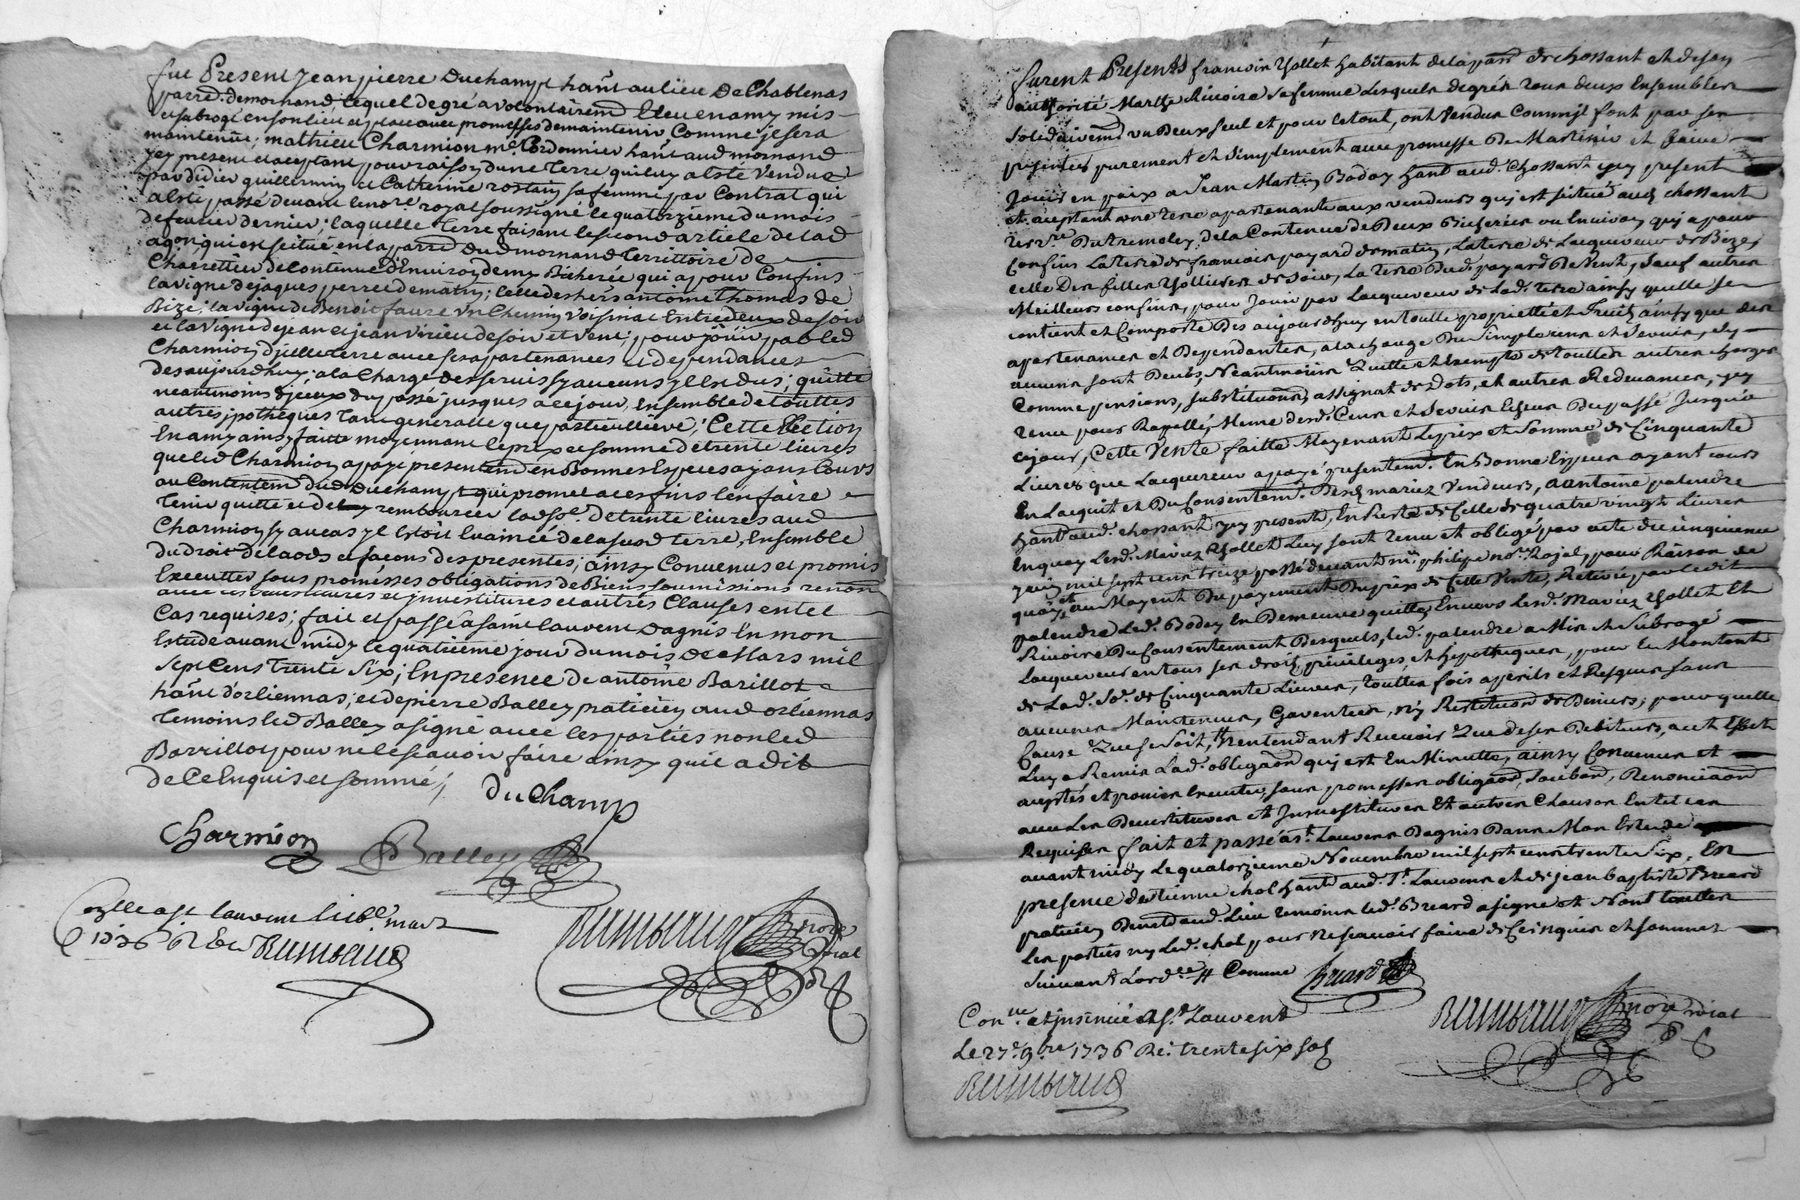 fut Present Jean pierre Duchamp hant au lieu De Chablenas
parre. demornand, lequel de gré a volontairem Eleu en amy mis
et subrogé en son lieu et place avec promesses de maintenir Comme je sera
maintenüe; mathieu Charmion me. Cordonnier hant aud mornand
yey present et aceptant pour raison d'une Terre qui luy a esté Vendue
par didier guillermin et Catherine rostain sa femme par Contrat qui
a esté passé devant le nore royal soussigné le quatorzieme du mois
de feuvrier dernier; laquelle Terre faisant le second article de lad
agon qui est scitué en la parre dud mornand Territoire de
Charettier de Contenue d'Enuiron demy Bicherée qui a pour Confins
la vigne de jaques perret de matin; celle des hers antoine Thomas de
Bize; la vigne de Benoit faure Un Chemin Voisinal Entredeux de soir
et la vigne de jean et jean virieu de soir et vent; pour joüir par led
Charmion d'jcelle terre avec ses apartenances et dependances
des aujourdhuy; a la Charge des servis sy aucuns y Est dus; quitte
neantmoins d'jceux du passé jusques a ce jour, Ensemble de touttes
autres jpotheques tant generalle que particulliere; Cette Election
En amy ainsy faitte moyennant le prix et somme de trente livres
que led Charmion a payé presentem en Bonnes Especes ayans Cours
au Contentem dud Duchampt qui promet a ces fins l'en faire
tenir quitte et de rembourcer lad so. de trente livres aud
Charmion sy au cas yl Estoit Euincé de la susd terre, Ensemble
du droit de laods et façons des presentes; ainsy Convenus et promis
Executter sous promesses obligations de Biens soumissions renon
avec les devestitures et jnvestitures et autres Clauses en tel
Cas requises; fait et passé a saint laurent Dagnis En mon
Estude avant midy le quatrieme jour du mois de Mars mil
sept Cens trente six; En presence de antoine Barillot
hant d'orliennas, et de pierre Balley praticien aud orliennas
temoins led Balley a signé avec les parties non led
Barrillot pour ne le scavoir faire ainsy qu'il a dit
de Ce Enquis et somme;
Duchamp
Charmion Balley
Conlle a st laurent le mars
1736 R Rimbaud
Rimbaud nore roial
furent Presents francois Thollet habitant de la parre de chossant et de son
authorité Marthe Rivoire sa femme Lesquels de gré tous deux Ensembles
Solidairemt un Deux seul et pour le tout, ont Vendus Commis font par ses
presentes purement et simplement avec promesse De Maitenir et faire
Jouir en paix a Jean Martin Boday hant aud. Chossant yey present
et aceptant une terre apartenante aux vendeurs qui est scituée aud chossant
terre. Du tremoley, de la Contenue de Deux Bicherées ou Enuiron, qui a pour
Confins La terre de francois payard de matin, La terre de Lacquereur de Bize,
celle Des filles Thollieres de soir, La terre Dud. payard De Vent, sauf autres
Meilleurs confins, pour Jouir par Lacquereur de Lad. terre ainsy quelle se
contient et Comporte Des aujourdhuy en toutte proprietté et fruits ainsy que des
apartenances et Dependances, a la charge Du simple cens et Servis, sy
aucuns sont Deubs, Neantmoins Quitte et Exempte de touttes autres charges
Comme pensions, substitutions, assignat de Dots, et autres Redevances, yey
tenu pour Rapellé, Meme desd. Cens et Servis Echeus Du passé Jusqu'a
cejour, Cette Vente faitte Moyenant Le prix et Somme de Cinquante
Livres que Lacquereur a payé presentemt. En Bonne Espece ayant cours
En Lacquit et Du Consentemt. Desd. mariez Vendeurs, a antoine palendre
hant aud. chossant yey present, En Reste de Celle de quatre vingt Livres
En quoy Lesd. Mariez Thollet Luy sont tenu et obligé par acte du cinquieme
juin mil sept cens treize passé devant me philipe nore Rozel, pour Raison de
quoy, et au Moyent Du payement Du prix de Cette Vente, Retiré par ledit
palendre Led. Boday En Demeure quitte Envers Lesd. Mariez Thollet Et
Rivoire Du Consentement Desquels, led. palendre a Mis et Subrogé
Lacquereur en tous ses droits, privileges, et hypotheques, pour le Montant
de Lad. So. de Cinquante Livres, touttes fois a perils et Risques sans
aucunes Maintenues, Garenties, ny Restitution de Deniers; pour quelle
Cause que se Soit, N'entendant Recevoir Que de ses Debiteurs, a cet Effet
Luy a Remis Lad. obligaon qui est En Minutte, ainsy Convenus et
aceptés et promis Executer, sous promesses obligaon, Soubon, Renonciaon
avec Les Devestitures et Jnvestitures Et autres Clauses En tel cas
Requises fait et passé a St. Laurens Dagnis Dans Mon Estude
avant midy Le quatorzieme Novembre mil sept cens trente Six, En
presence d'estienne chol hant aud. St Laurens et de Jean Baptiste Breard
praticien Demt aud. Lieu temoins Led. Breard a signé et Non touttes
Les parties ny Led. chol pour ne scavoir faire de Ce Enquis et sommez
Suivant Lordce # Comme Breard
Rimbaud nore roial
Conlle et jnsinué a St. Laurent
Le 27e. 9bre 1736 Re. trente six sols
Rimbaud